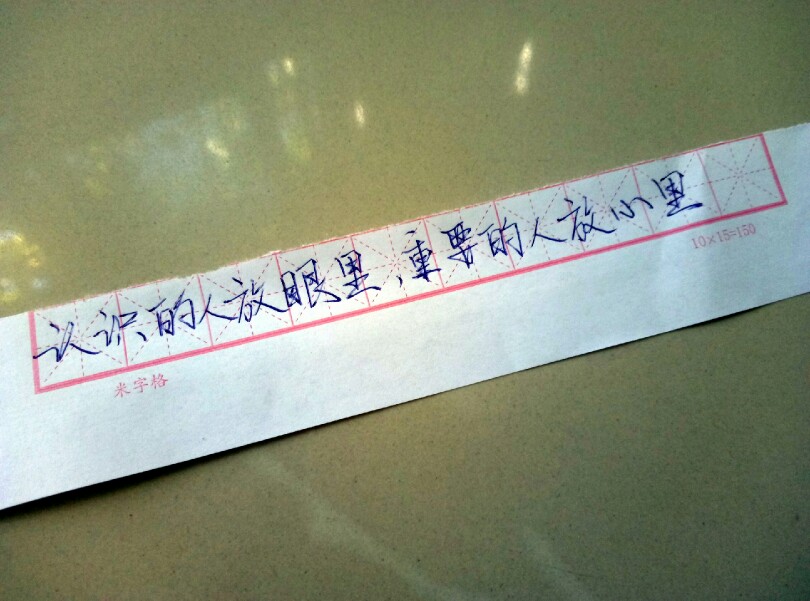 认识的人放眼里,重要的人放心里
10×15=150
米字格